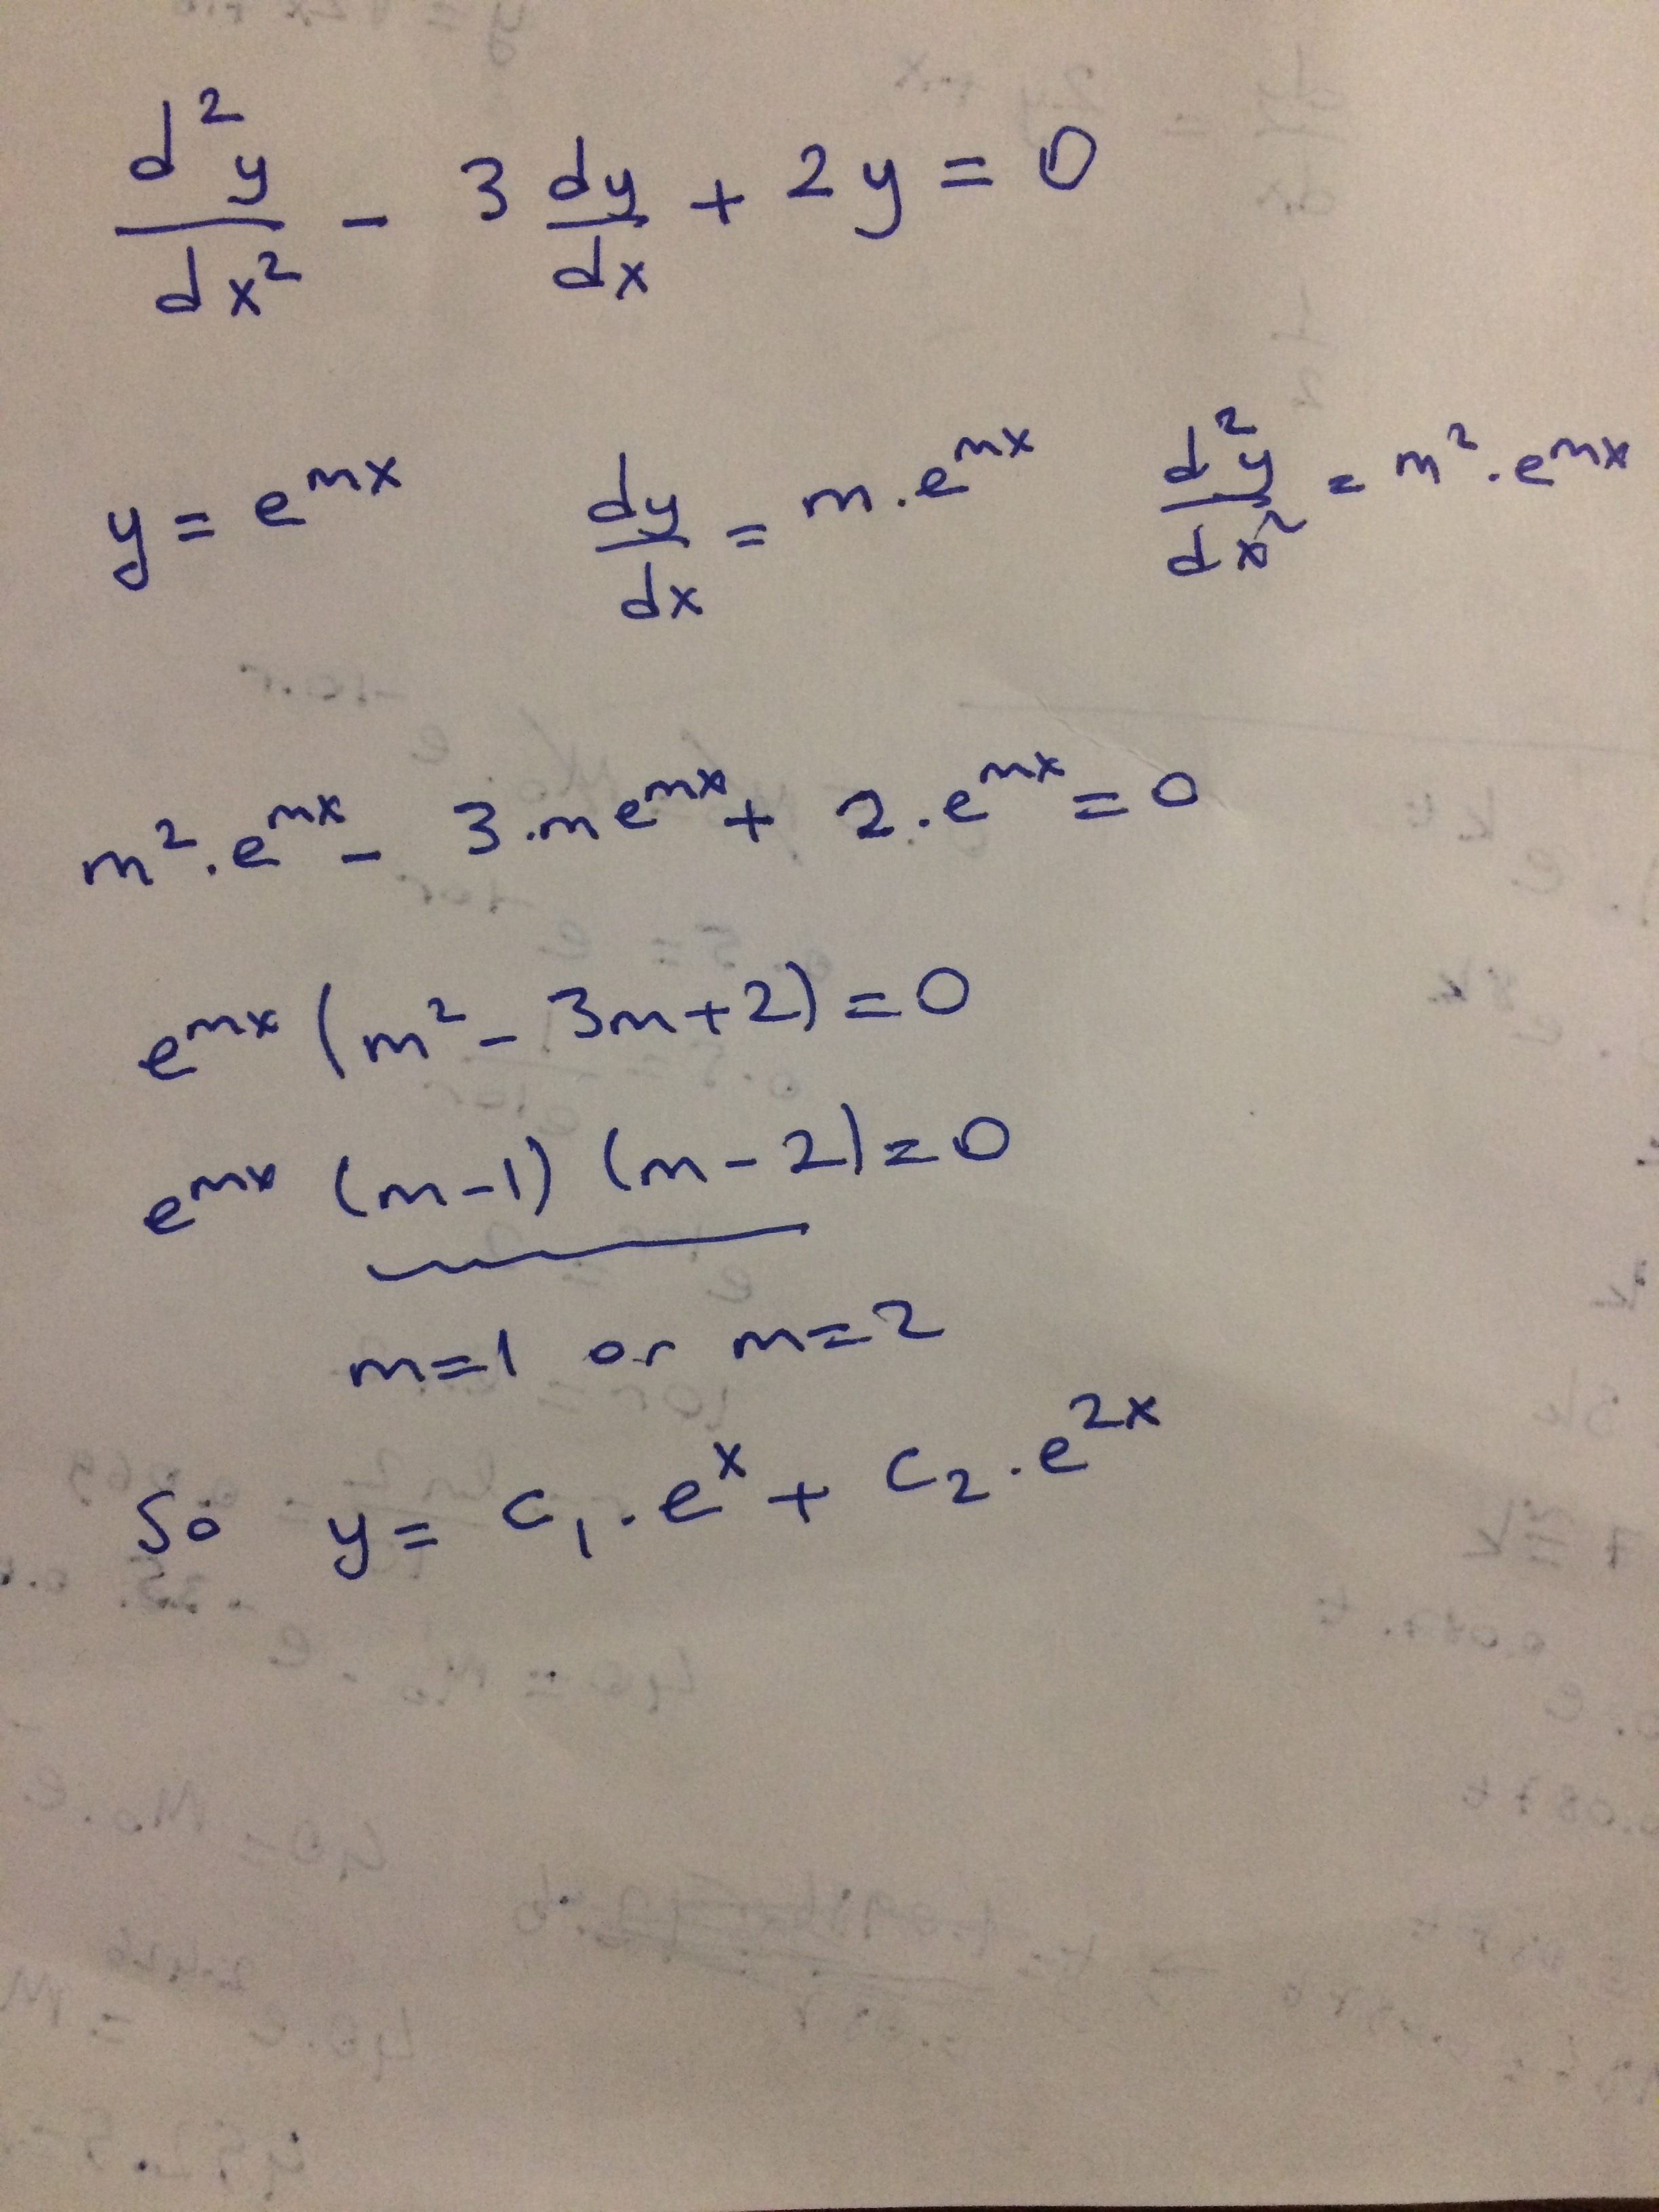 d²y/dx² - 3 dy/dx + 2y = 0
y = e^mx dy/dx = m.e^mx d²y/dx² = m².e^mx
m².e^mx - 3.me^mx + 2.e^mx = 0
e^mx (m² - 3m + 2) = 0
e^mx (m-1) (m-2) = 0
m=1 or m=2
So y = c₁.e^x + c₂.e^2x